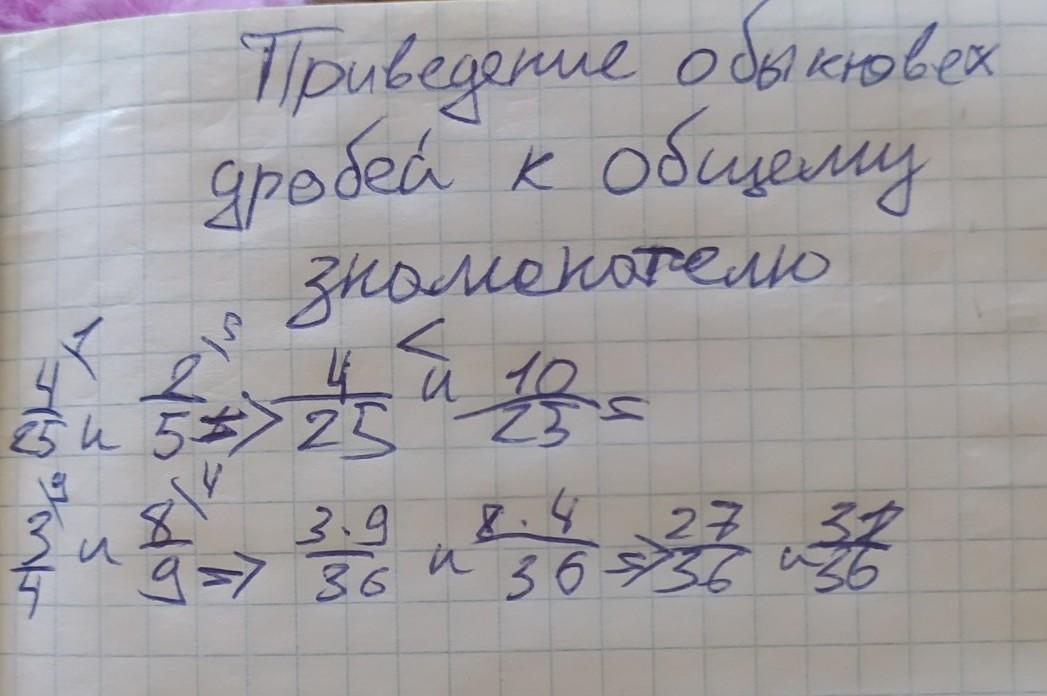 Приведение обыкновех
дробей к общему
знаменателю
4/25 \1 и 2/5 \5 => 4/25 < и 10/25 =
3/4 \9 и 8/9 \4 => 3·9/36 и 8·4/36 => 27/36 и 32/36